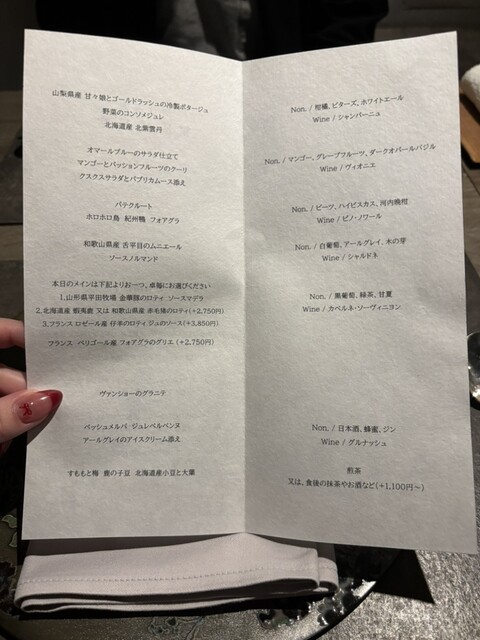 山梨県産 甘々娘とゴールドラッシュの冷製ポタージュ
野菜のコンソメジュレ
北海道産 北紫雲丹
オマールブルーのサラダ仕立て
マンゴーとパッションフルーツのクーリ
クスクスサラダとパプリカムース添え
パテクルート
ホロホロ鳥 紀州鴨 フォアグラ
和歌山県産 舌平目のムニエール
ソースノルマンド
本日のメインは下記よりお一つ、卓毎にお選びください
1.山形県平田牧場 金華豚のロティ ソースマデラ
2.北海道産 蝦夷鹿 又は 和歌山県産 赤毛猪のロティ(+2,750円)
3.フランス ロゼール産 仔羊のロティ ジュのソース(+3,850円)
フランス ペリゴール産 フォアグラのグリエ (+2,750円)
ヴァンショーのグラニテ
ペッシュメルバ ジュレベルベンヌ
アールグレイのアイスクリーム添え
すももと梅 鹿の子豆 北海道産小豆と大葉
Non. / 柑橘、ビターズ、ホワイトエール
Wine / シャンパーニュ
Non. / マンゴー、グレープフルーツ、ダークオパールバジル
Wine / ヴィオニエ
Non. / ビーツ、ハイビスカス、河内晩柑
Wine / ピノ・ノワール
Non. / 白葡萄、アールグレイ、木の芽
Wine / シャルドネ
Non. / 黒葡萄、緑茶、甘夏
Wine / カベルネ・ソーヴィニヨン
Non. / 日本酒、蜂蜜、ジン
Wine / グルナッシュ
煎茶
又は、食後の抹茶やお酒など(+1,100円~)